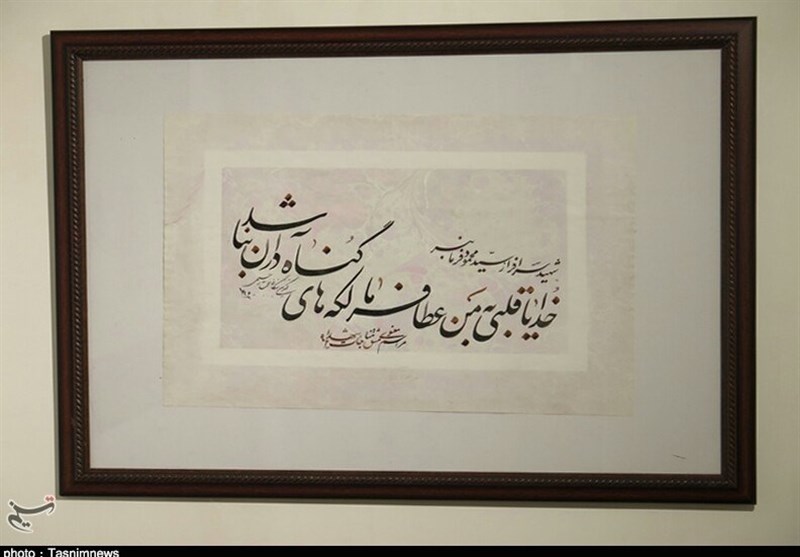 شهید سرافراز سید محمود فرمانبر
خدایا قلبی به من عطا فرما
لکه های گناه در آن نباشد
مراسم معنوی
photo : Tasnimnews